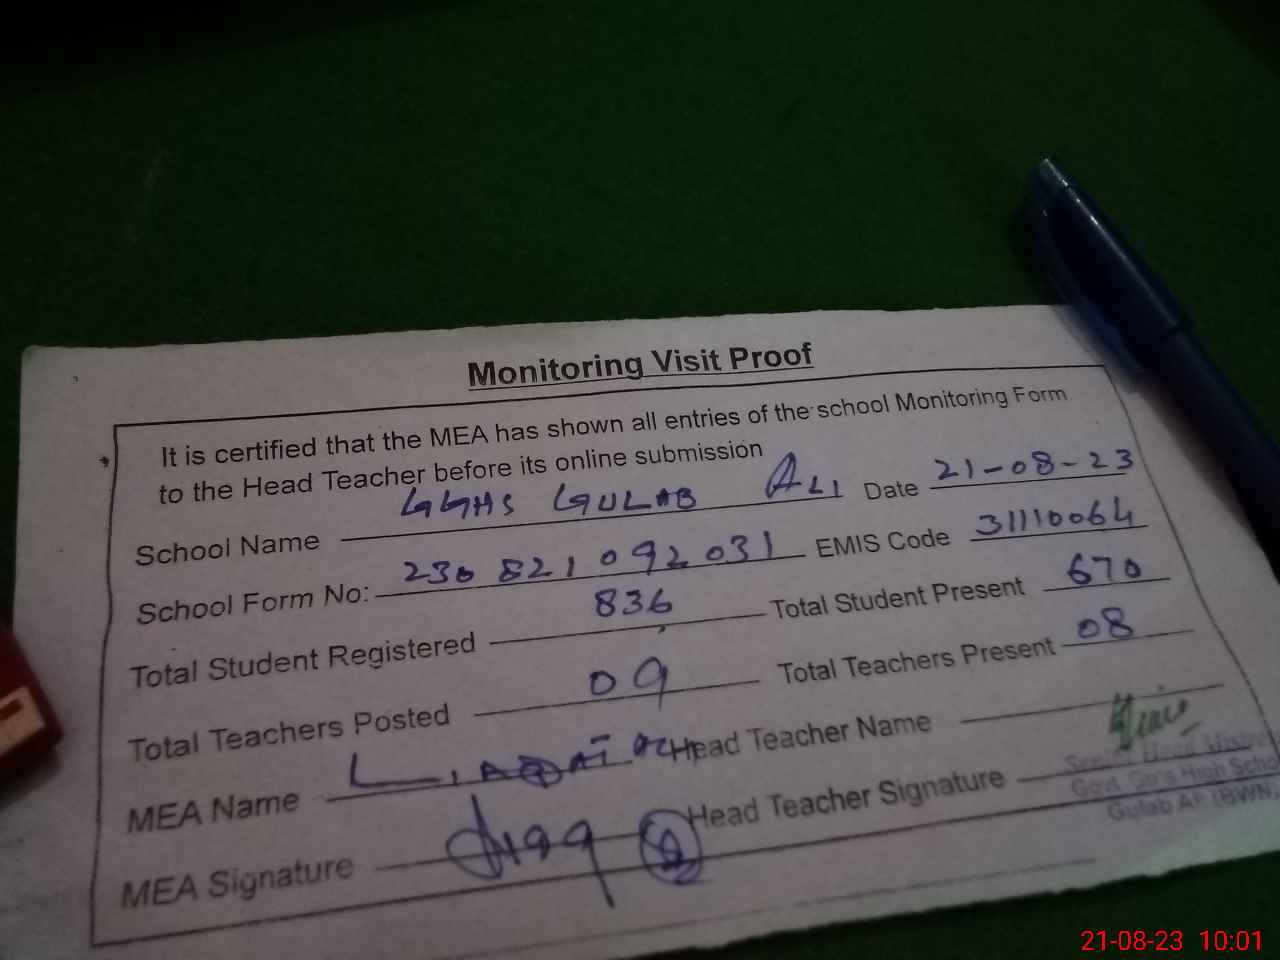 Monitoring Visit Proof
It is certified that the MEA has shown all entries of the school Monitoring Form
to the Head Teacher before its online submission
School Name GGHS GULAB ALI Date 21-08-23
School Form No: 230821092031 EMIS Code 31110064
Total Student Registered 836 Total Student Present 670
Total Teachers Posted 09 Total Teachers Present 08
MEA Name Head Teacher Name
MEA Signature Head Teacher Signature
Senior Head Mistress
Govt. Girls High School
Gulab Ali (BWN)
21-08-23 10:01